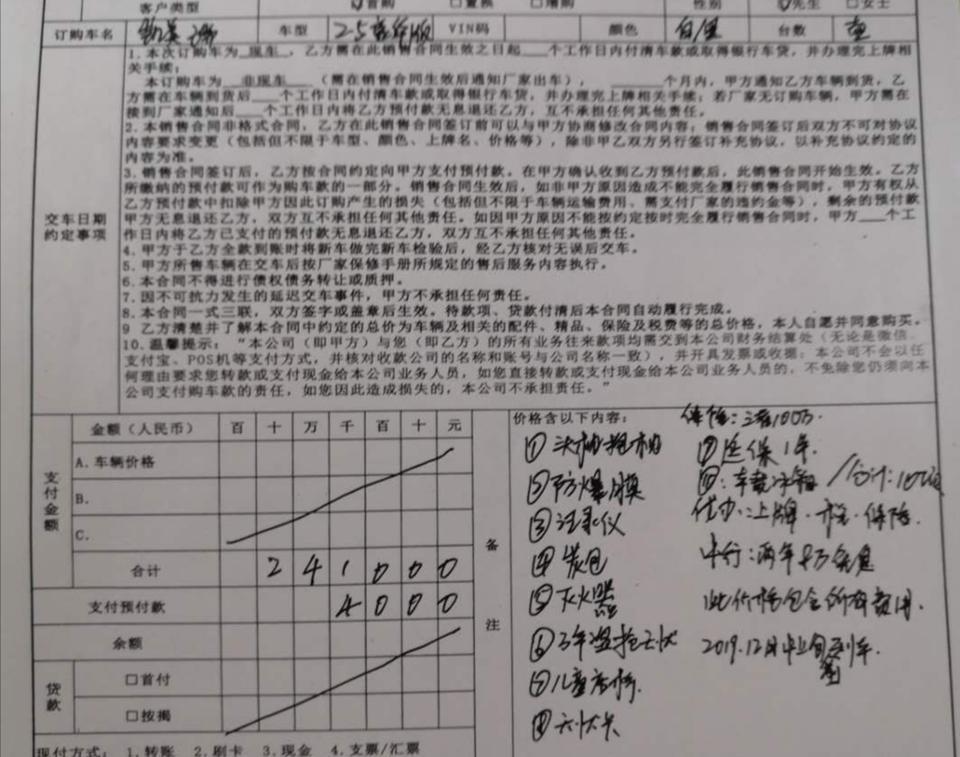 客户类型 首购 置换 增购 性别 先生 女士
订购车名 车型 2.5 VIN码 颜色 台数
1. 本次订购车为 现车 ，乙方需在此销售合同生效之日起___个工作日内付清车款或取得银行车贷，并办理完上牌相
关手续；
本订购车为 非现车 （需在销售合同生效后通知厂家出车），______个月内，甲方通知乙方车辆到货，乙
方需在车辆到货后___个工作日内付清车款或取得银行车贷，并办理完上牌相关手续；若厂家无订购车辆，甲方需在
接到厂家通知后___个工作日内将乙方预付款无息退还乙方，互不承担任何其他责任。
2. 本销售合同非格式合同，乙方在此销售合同签订前可以与甲方协商修改合同内容；销售合同签订后双方不可对协议
内容要求变更（包括但不限于车型、颜色、上牌名、价格等），除非甲乙双方另行签订补充协议，以补充协议约定的
内容为准。
3. 销售合同签订后，乙方按合同约定向甲方支付预付款。在甲方确认收到乙方预付款后，此销售合同开始生效。乙方
所缴纳的预付款可作为购车款的一部分。销售合同生效后，如非甲方原因造成不能完全履行销售合同时，甲方有权从
乙方预付款中扣除甲方因此订购产生的损失（包括但不限于车辆运输费用、需支付厂家的违约金等），剩余的预付款
甲方无息退还乙方，双方互不承担任何其他责任。如因甲方原因不能按约定按时完全履行销售合同时，甲方___个工
作日内将乙方已支付的预付款无息退还乙方，双方互不承担任何其他责任。
交车日期
约定事项
4. 甲方于乙方全款到账时将新车做完新车检验后，经乙方核对无误后交车。
5. 甲方所售车辆在交车后按厂家保修手册所规定的售后服务内容执行。
6. 本合同不得进行债权债务转让或质押。
7. 因不可抗力发生的延迟交车事件，甲方不承担任何责任。
8. 本合同一式三联，双方签字或盖章后生效。待款项、贷款付清后本合同自动履行完成。
9 乙方清楚并了解本合同中约定的总价为车辆及相关的配件、精品、保险及税费等的总价格，本人自愿并同意购买。
10. 温馨提示：“本公司（即甲方）与您（即乙方）的所有业务往来款项均需交到本公司财务结算处（无论是微信、
支付宝、POS机等支付方式，并核对收款公司的名称和账号与公司名称一致），并开具发票或收据；本公司不会以任
何理由要求您转款或支付现金给本公司业务人员，如您直接转款或支付现金给本公司业务人员的，不免除您仍须向本
公司支付购车款的责任，如您因此造成损失的，本公司不承担责任。”
支付金额
金额（人民币） 百 十 万 千 百 十 元
A. 车辆价格
B.
C.
合计 2 4 1 0 0 0
支付预付款 4 0 0 0
余额
贷款
□首付
□按揭
现付方式： 1. 转账 2. 刷卡 3. 现金 4. 支票/汇票
备注
价格含以下内容：
① 头枕抱枕
② 防爆膜
③ 记录仪
④
⑤ 灭火器
⑥ 3年盗抢
⑦ 儿童座椅
⑧
保险：三者100万.
⑨ 延保1年.
⑩：车载冰箱
代办：上牌. 保险.
中行：两年
此价格包含所有费用.
2019.12月中旬到车.